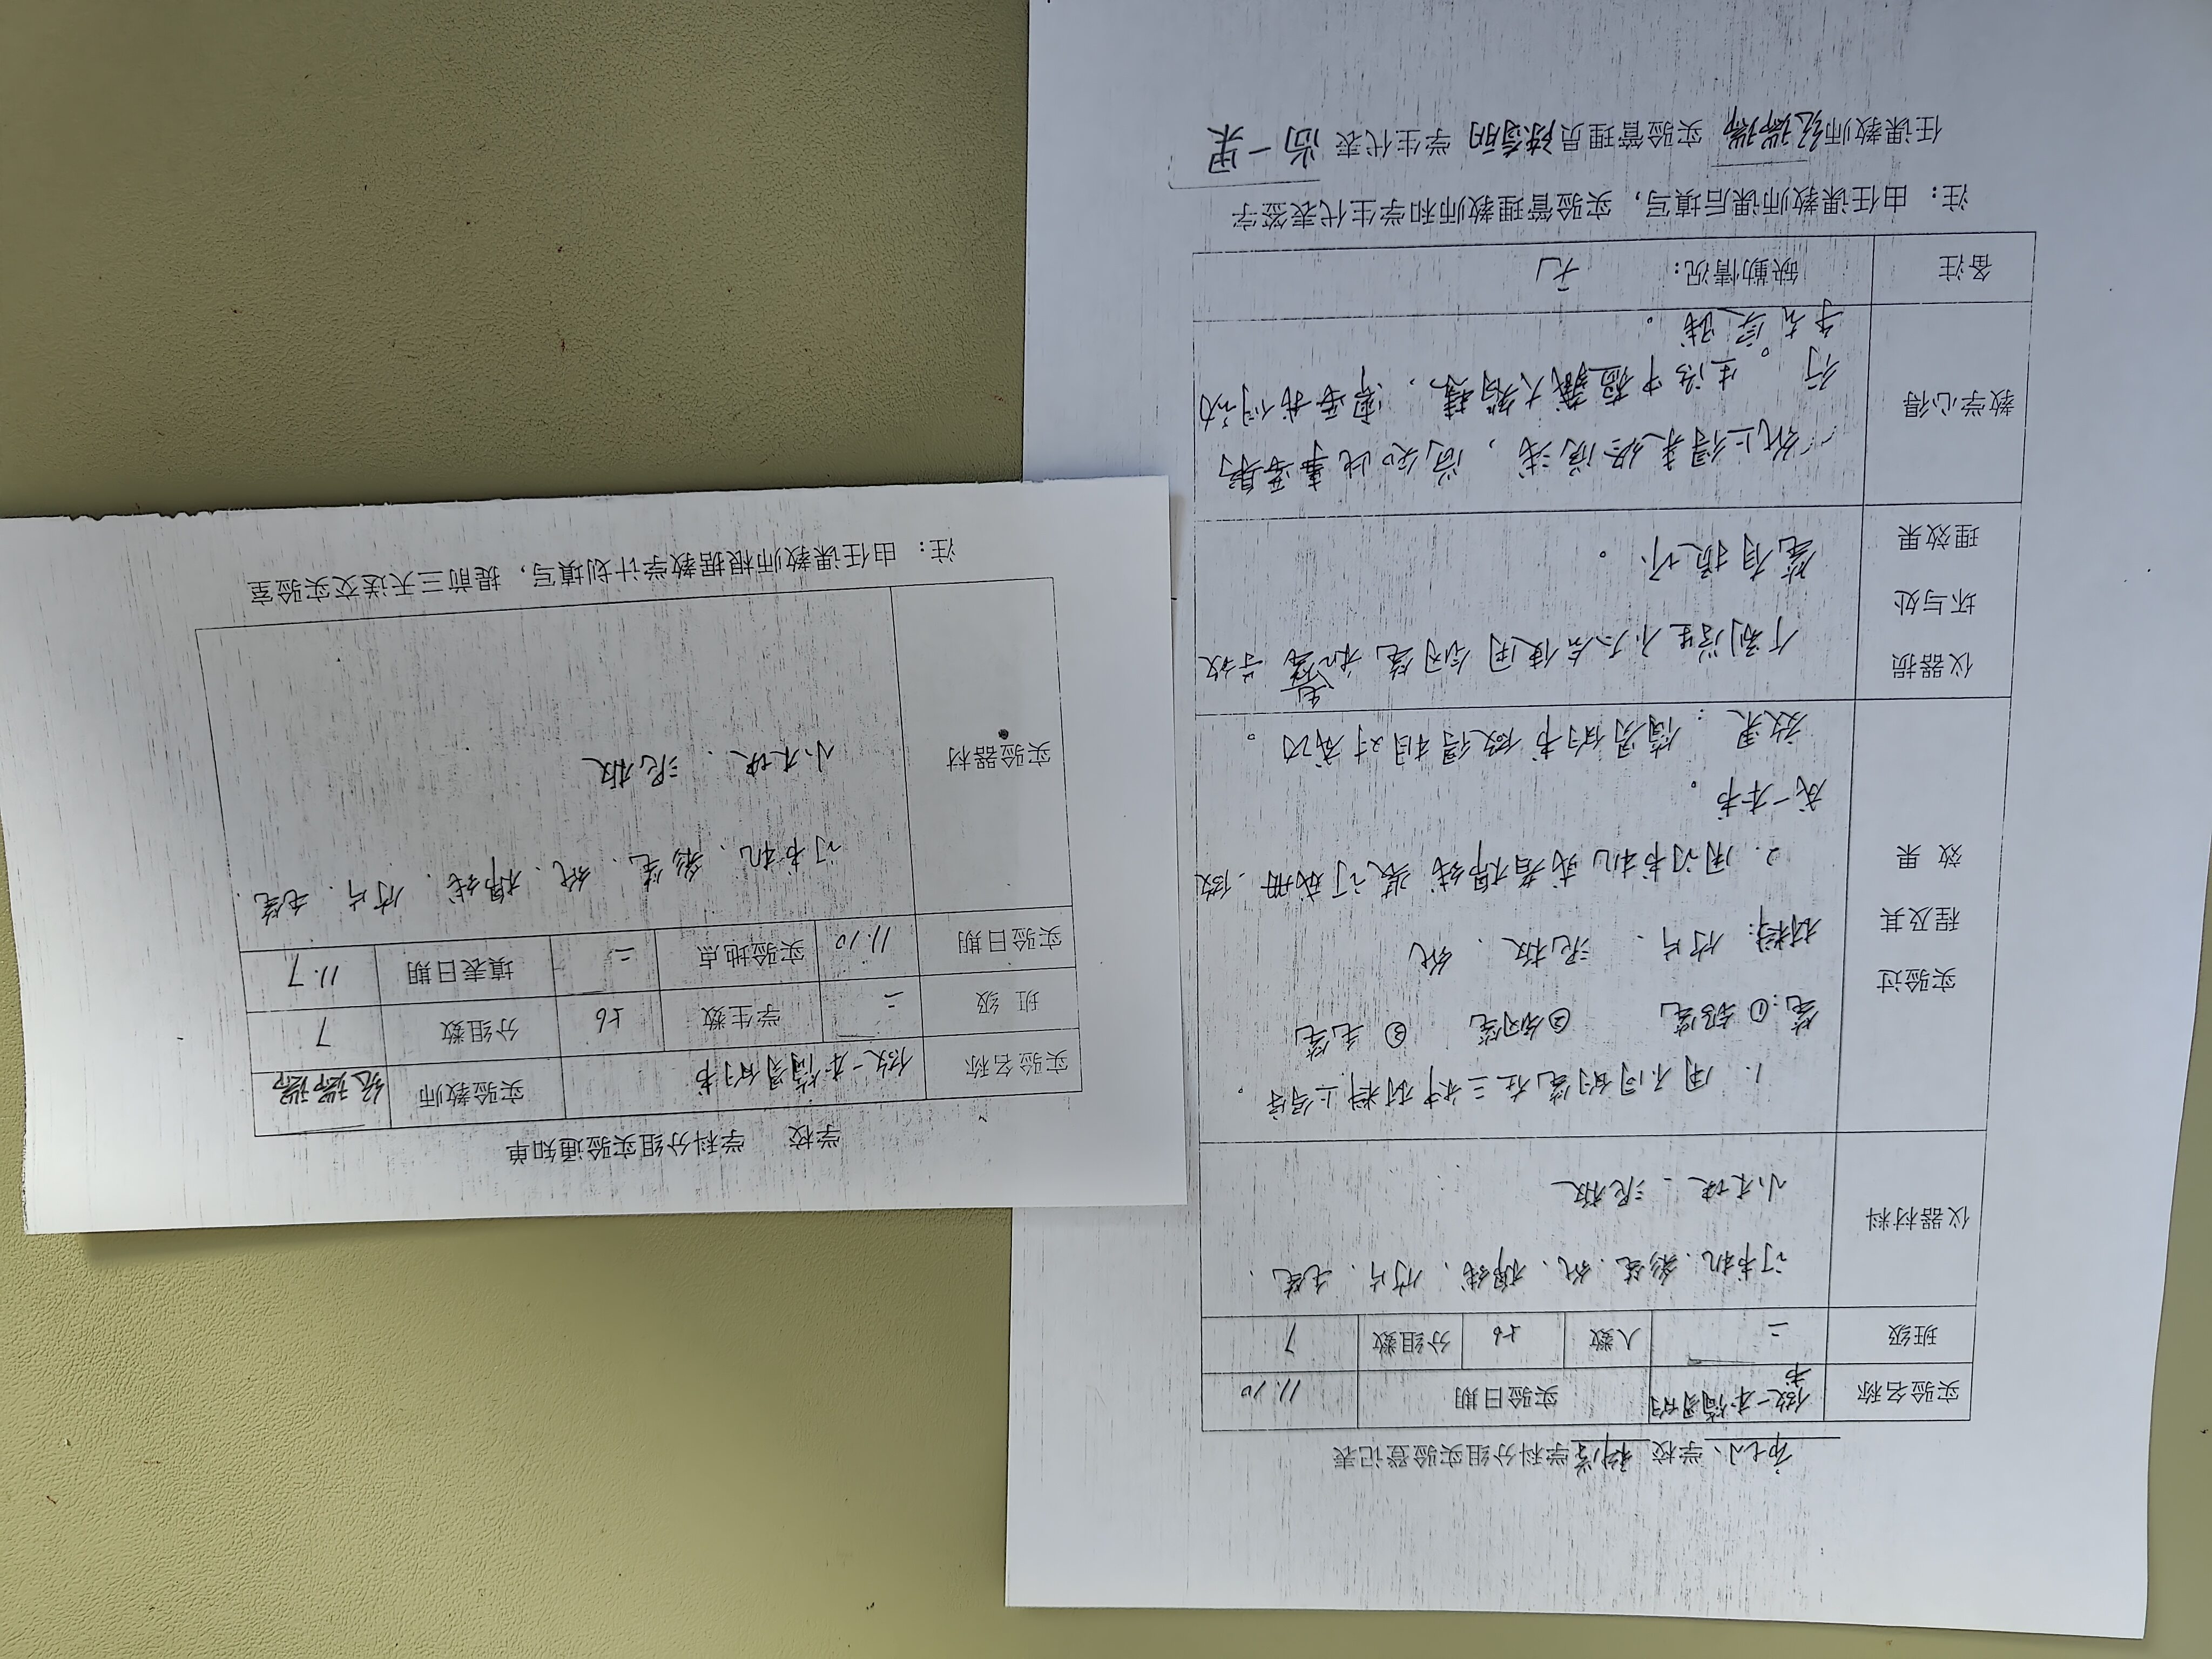 市七小 学校 科学 学科分组实验登记表
实验名称 做一本简易的书 实验日期 11.10
班级 二 人数 56 分组数 7
仪器材料 订书机、彩笔、纸、棉线、竹片、毛笔、
小木块、泥板
实验过程及其效果
1. 用不同的笔在三种材料上写字。
笔:①铅笔 ②钢笔 ③毛笔
材料:竹片、泥板、纸
2. 用订书机或者棉线装订成册,做
成一本书。
效果:简易的书做得相对成功。
仪器损坏与处理效果
个别学生不会使用钢笔和毛笔 导致
笔有损坏。
教学心得
纸上得来终觉浅,尚知此事要躬
行。生活中 需要我们动
手去实践。
备注 缺勤情况: 无
注:由任课教师课后填写,实验管理教师和学生代表签字
任课教师 实验管理员 学生代表 尚一果
学校 学科分组实验通知单
实验名称 做一本简易的书 实验教师
班级 二 学生数 56 分组数 7
实验日期 11.10 实验地点 二 填表日期 11.7
实验器材
订书机、彩笔、纸、棉线、竹片、毛笔、
小木块、泥板
注:由任课教师根据教学计划填写,提前三天送交实验室